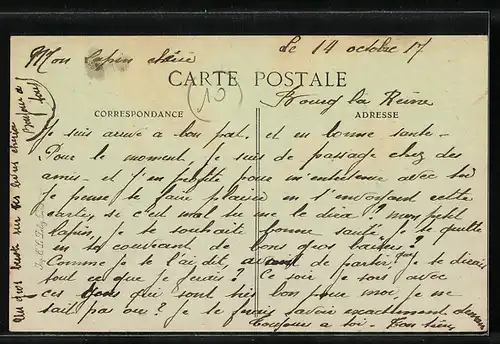 Mon lapin chérie
Le 14 octobre 17
CARTE POSTALE
(10)
Bourg la Reine
CORRESPONDANCE
ADRESSE
Je suis arrivé a bon port. et en bonne sante -
Pour le moment, je suis de passage chez des
amis - et j'en profite pour m'entretenir avec toi
je pense te faire plaisir en t'envoyant cette
carte, si c'est mal tu me le dira? mon petit
lapin, je te souhaite bonne santé, je te quitte
en te couvrant de bon gros baisers?
Comme je te l'ai dit, avant de partir que je te dirais
tout ce que je ferais? Ce soir je suis avec
- ces gens qui sont très bon pour moi, je ne
sait pas ou? je te ferais savoir exactement demain
Toujours a toi. Ton
Un gros sur tes chérie
Bonjour a tous